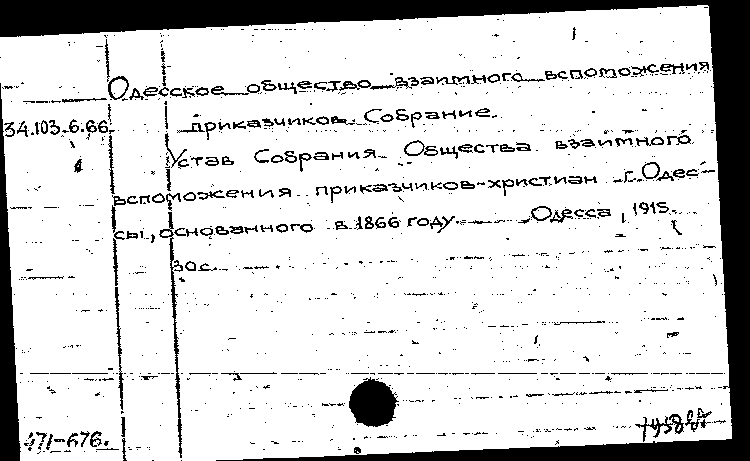 Одесское общество взаимного вспоможения
34.103.6.66. приказчиков. Собрание.
Устав Собрания Общества взаимного
вспоможения приказчиков-христиан г. Одес-
сы, основанного в 1866 году. Одесса, 1915.
30с.
471-676.